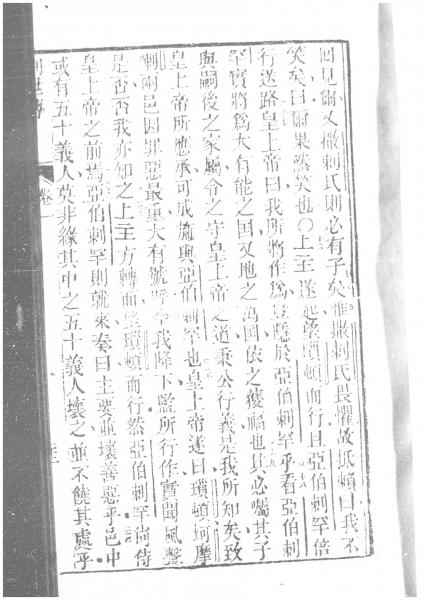 回見爾又撒剌氏則必有子矣惟撒剌氏畏懼故抵賴曰我不
笑矣曰爾果然笑也〇上主遂起望瑣頓而行且亞伯剌罕倍
行送路皇上帝曰我所將作為豈隱於亞伯剌罕乎看亞伯剌
罕實將為大有能之國又地之萬國依之獲福也其必囑其子
與嗣後之家屬令之守皇上帝之道秉公行義是我所知矣致
皇上帝所應承可成就與亞伯剌罕也皇上帝遂曰瑣頓坷摩
剌兩邑因罪惡最重大有號呼今我降下監所行作實聞風聲
是否否我亦知之上主方轉面望瑣頓而行然亞伯剌罕尚侍
皇上帝之前焉亞伯剌罕則就來奏曰主要並壞善惡乎邑中
或有五十義人莫非緣其中之五十義人壞之並不饒其處乎
卷一